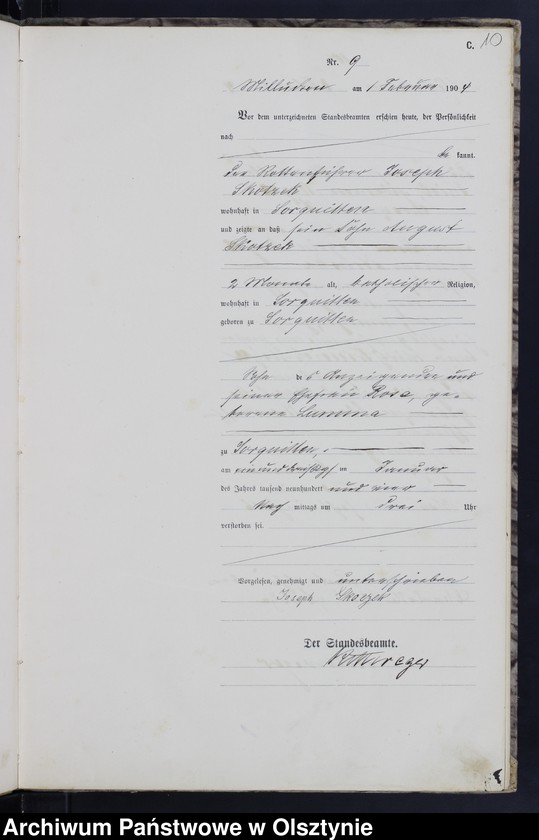 C. 10
Nr. 9
am 1. Februar 1904
Vor dem unterzeichneten Standesbeamten erschien heute, der Persönlichkeit
nach
be kannt,
der Rottenführer Joseph
Skotzek
wohnhaft in Sorquitten
und zeigte an daß sein Sohn August
Skotzek
2 Monate alt, katholischer Religion,
wohnhaft in Sorquitten
geboren zu Sorquitten
Sohn des Anzeigenden und
seiner Ehefrau Rosa, ge-
borene
zu Sorquitten,
am einunddreißigsten Januar
des Jahres tausend neunhundert und vier
Nach mittags um drei Uhr
verstorben sei.
Vorgelesen, genehmigt und unterschrieben
Joseph Skoczek
Der Standesbeamte.
Archiwum Państwowe w Olsztynie